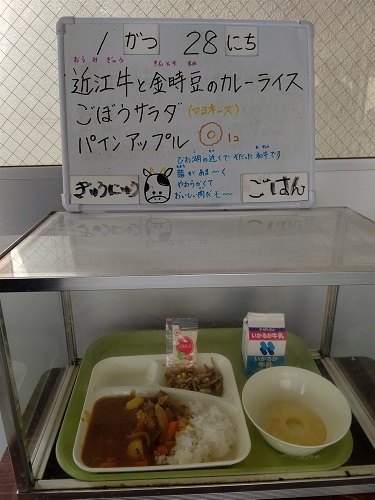 1 がつ 28 にち
おうみぎゅう きんときまめ
近江牛と金時豆のカレーライス
ごぼうサラダ (マヨネーズ)
パインアップル 1コ
びわ湖の近くでそだった和牛です
脂があま〜く
やわらかくて
おいしい肉だモ〜
ぎゅうにゅう
ごはん
いかるが牛乳
いかるが
牛乳